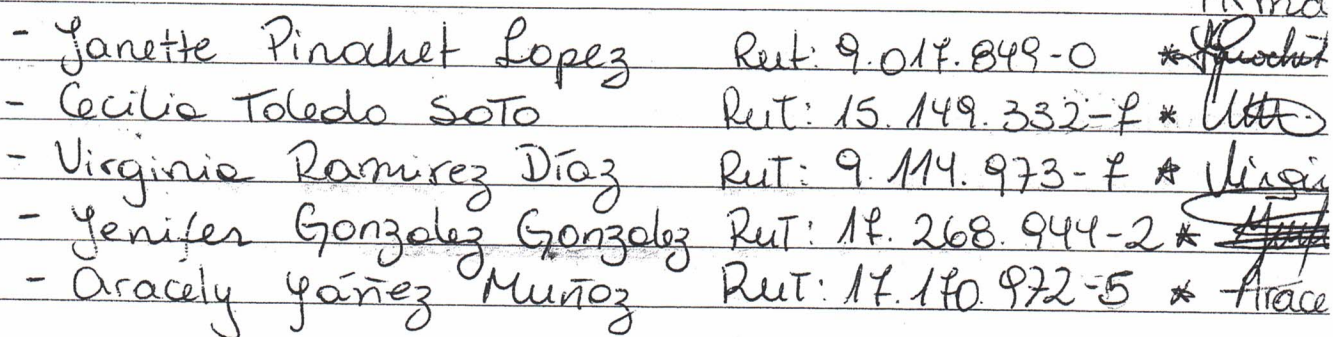 - Janette Pinochet Lopez Rut: 9.017.849-0 *
- Cecilia Toledo Soto RuT: 15.149.332-7 *
- Virginia Ramirez Díaz RuT: 9.114.973-7 * Virgin
- Jenifer Gonzalez Gonzalez RuT: 17.268.944-2 *
- Aracely Yáñez Muñoz RuT: 17.170.972-5 * Arace